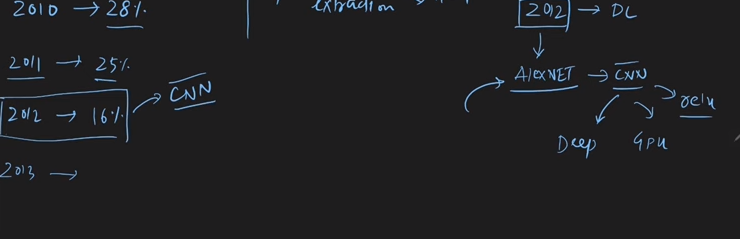 2010 → 28%
2011 → 25%
2012 → 16% → CNN
2013 →
extraction
2012 → DL
AlexNET → CNN
relu
Deep GPU